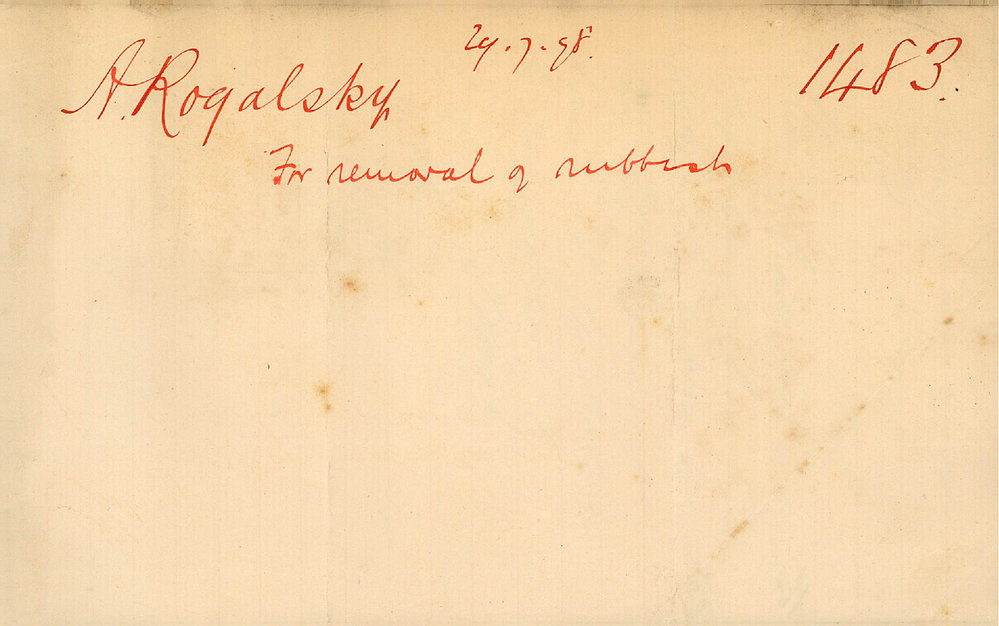 29.7.98.
A. Rogalsky
1483.
For removal of rubbish